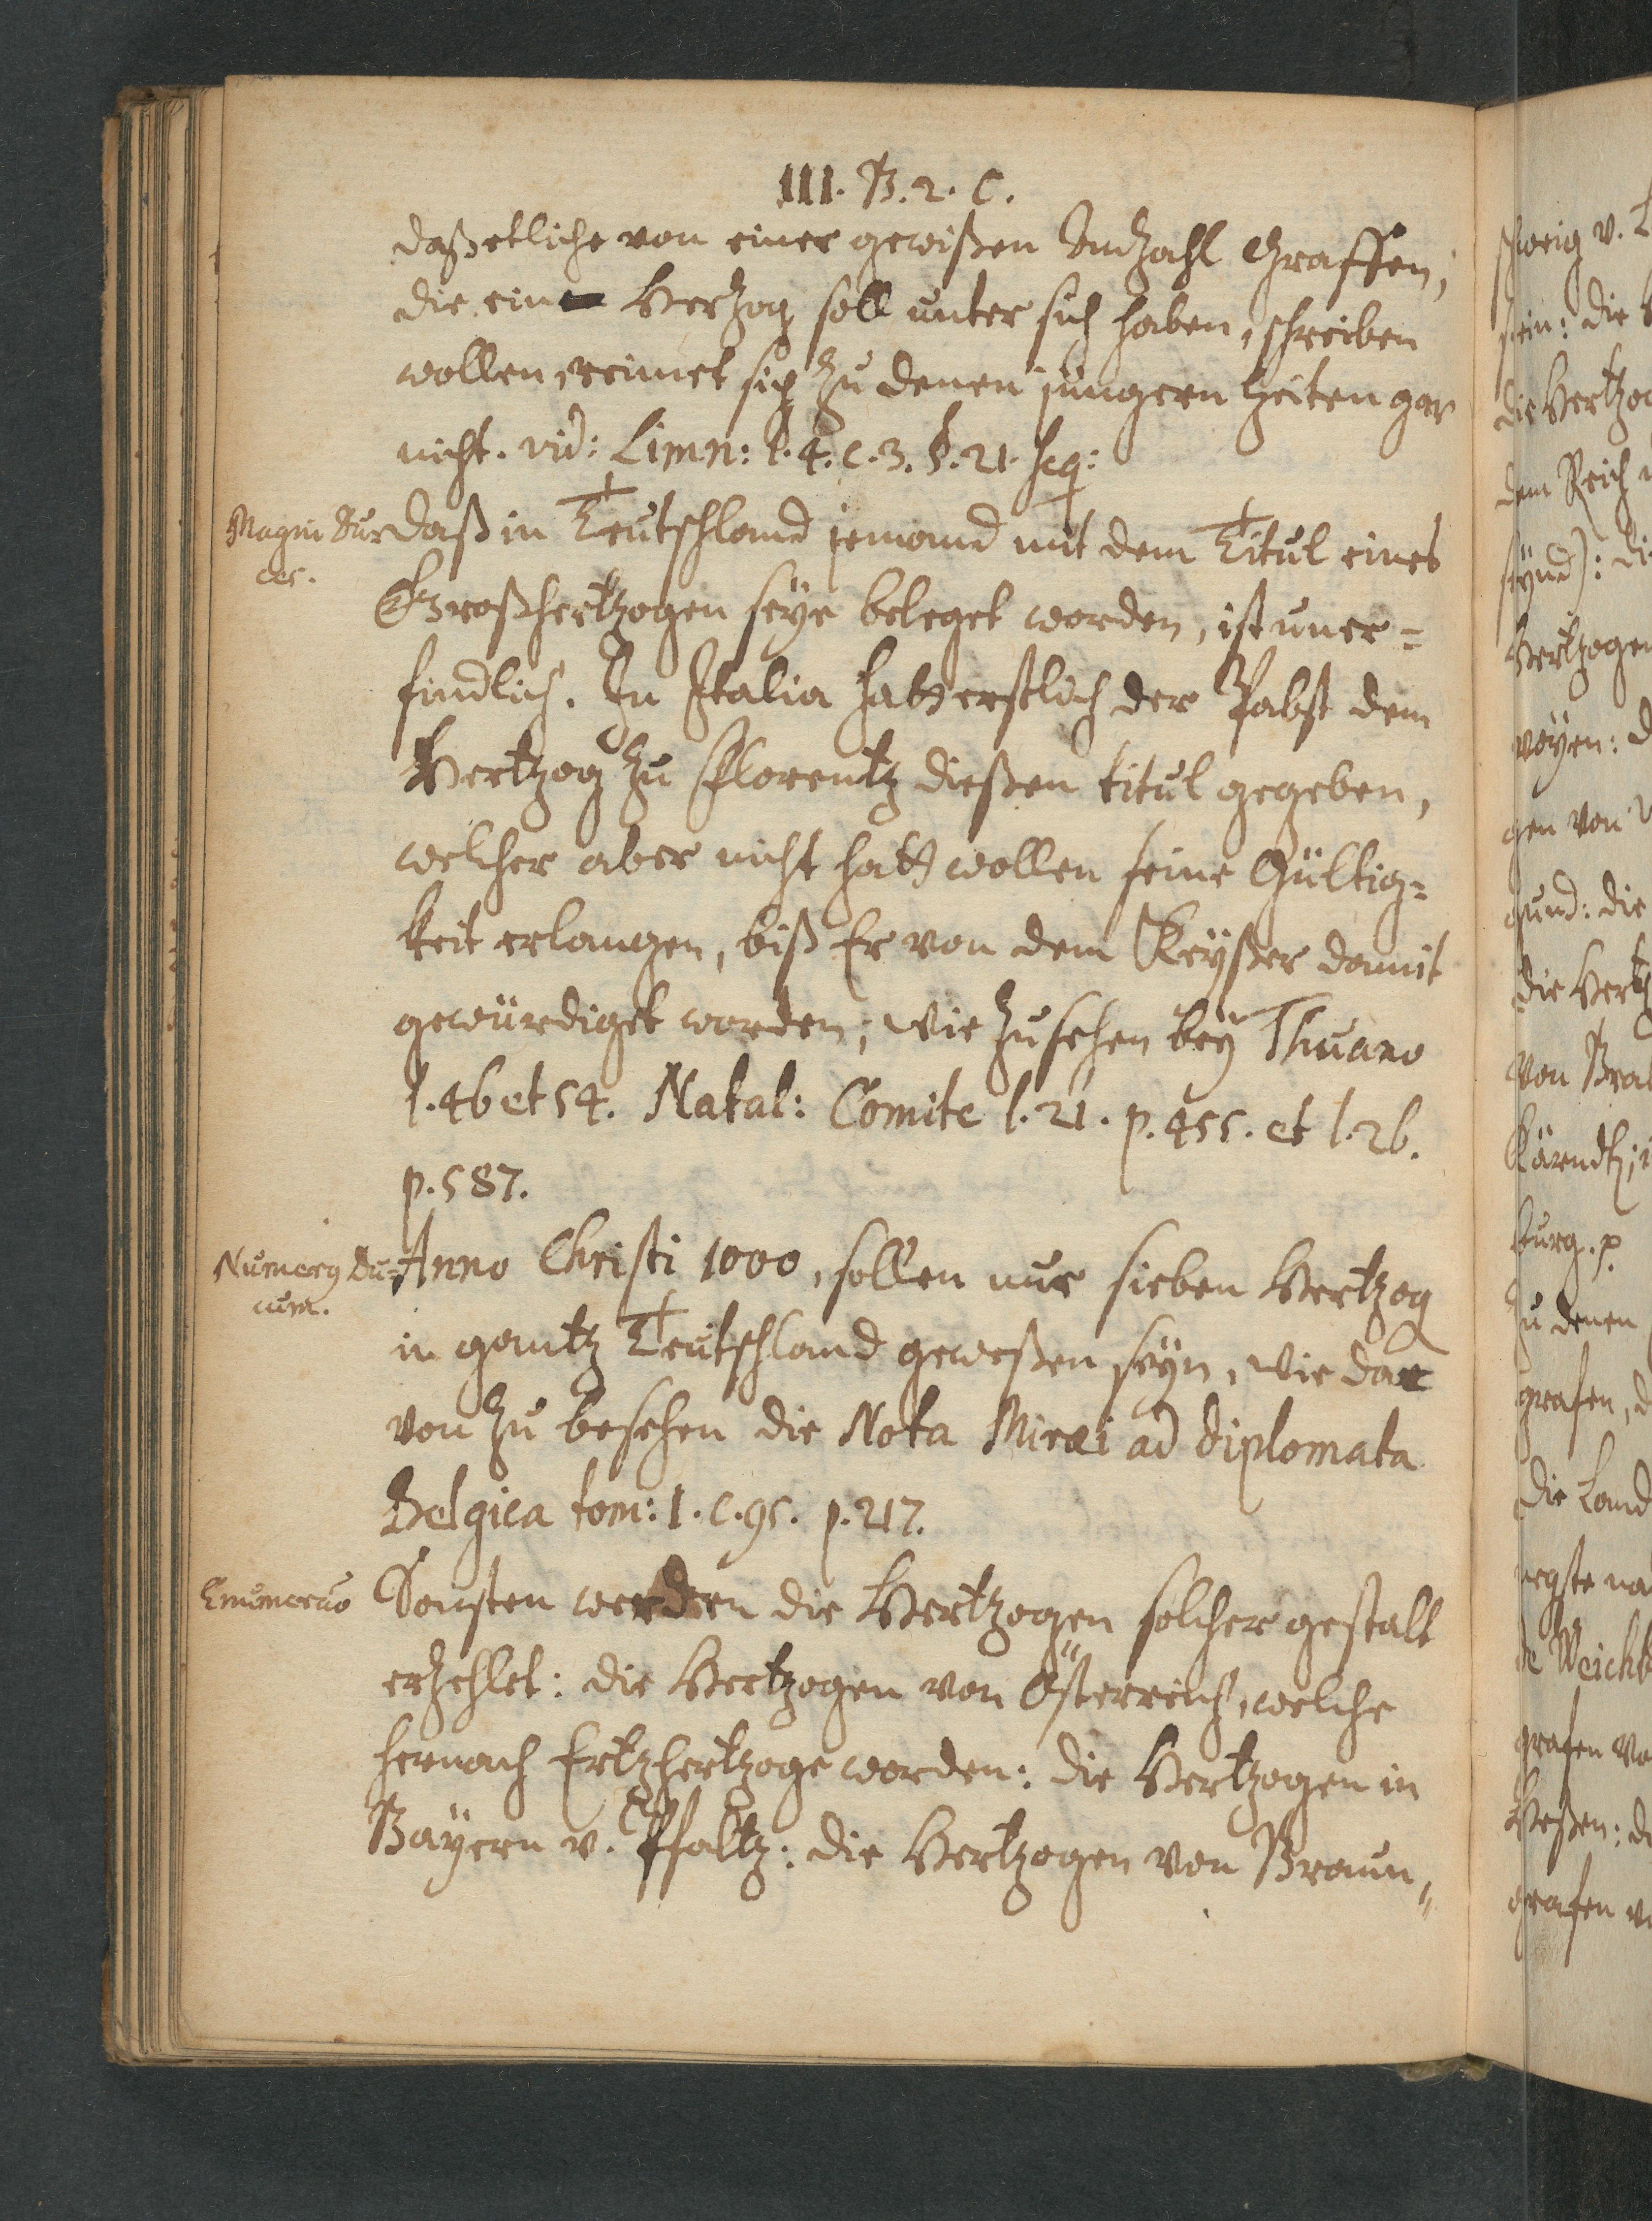 III. B. 2. C.
daß etliche von einer gewißen Andzahl Graffen,
die ein Herzog soll unter sich haben, schreiben
wollen, reimet sich zu denen jüngern Zeiten gar
nicht. vid: Limn: l. 4. c. 3. §. 21. seq:
Magni Du-
ces.
Daß in Teutschland jemand mit dem Titul eines
Großhertzogen seye beleget worden, ist uner=
findlich. In Italia hatt erstlich der Pabst dem
Hertzog zu Florentz dießen titul gegeben,
welcher aber nicht hatt wollen seine Gültig=
keit erlangen, biß Er von dem Keyßer damit
gewürdiget worden; wie zusehen bey Thuano
l. 46 et 54. Natal: Comite l. 21. p. 455. et l. 26.
p. 587.
Numerus Du=
cum.
Anno Christi 1000, sollen nur sieben Hertzog
in gantz Teutschland geweßen seyn, wie da
von zu besehen die Nota Miræi ad diplomata
Belgica tom: 1. c. 95. p. 217.
Enumeratio
Sonsten werden die Hertzogen solcher gestalt
erzehlet: die Hertzogen von Österreich, welche
hernach Ertzhertzoge worden: die Hertzogen in
Bäyern v. Pfaltz: die Hertzogen von Braun„
schweig v. L
stein: die
die Hertzog
dem Reich
seynd): die
Hertzogen
voyen: d
gen von
gund: die
die Hertz
von Bra
Kärndt
burg. p
Zu denen
grafen, d
die Land
de Weichb
grafen vo
Heßen: d
grafen v